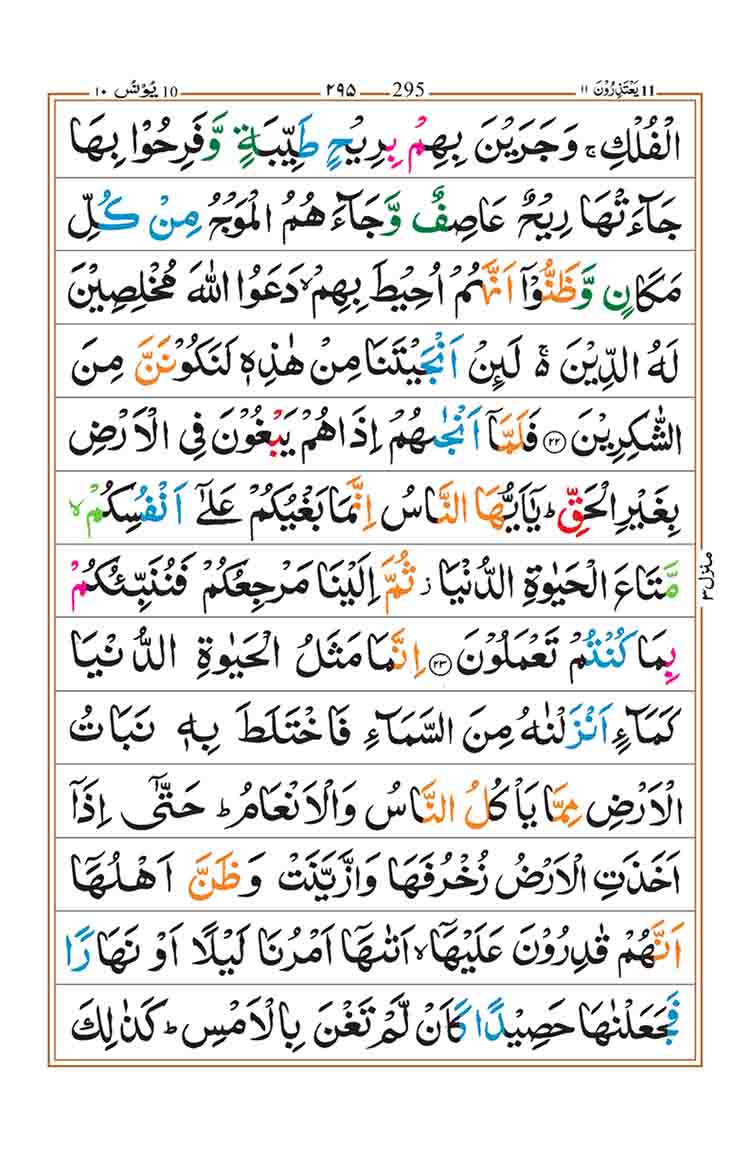 ١٠ يُوْنُس 10 ٢٩٥ 295 ١١ يَعْتَذِرُوْنَ 11
الْفُلْكِ ۚ وَجَرَيْنَ بِهِمْ بِرِيْحٍ طَيِّبَةٍ وَّفَرِحُوْا بِهَا
جَآءَتْهَا رِيْحٌ عَاصِفٌ وَّجَآءَهُمُ الْمَوْجُ مِنْ كُلِّ
مَكَانٍ وَّظَنُّوْۤا اَنَّهُمْ اُحِيْطَ بِهِمْ ۙ دَعَوُا اللّٰهَ مُخْلِصِيْنَ
لَهُ الدِّيْنَ ۬ۚ لَئِنْ اَنْجَيْتَنَا مِنْ هٰذِهٖ لَنَكُوْنَنَّ مِنَ
الشّٰكِرِيْنَ ﴿٢٢﴾ فَلَمَّاۤ اَنْجٰىهُمْ اِذَا هُمْ يَبْغُوْنَ فِى الْاَرْضِ
بِغَيْرِ الْحَقِّ ؕ يٰۤاَيُّهَا النَّاسُ اِنَّمَا بَغْيُكُمْ عَلٰٓى اَنْفُسِكُمْ ۙ
مَّتَاعَ الْحَيٰوةِ الدُّنْيَا ؗ ثُمَّ اِلَيْنَا مَرْجِعُكُمْ فَنُنَبِّئُكُمْ
بِمَا كُنْتُمْ تَعْمَلُوْنَ ﴿٢٣﴾ اِنَّمَا مَثَلُ الْحَيٰوةِ الدُّنْيَا
كَمَآءٍ اَنْزَلْنٰهُ مِنَ السَّمَآءِ فَاخْتَلَطَ بِهٖ نَبَاتُ
الْاَرْضِ مِمَّا يَاْكُلُ النَّاسُ وَالْاَنْعَامُ ؕ حَتّٰۤى اِذَاۤ
اَخَذَتِ الْاَرْضُ زُخْرُفَهَا وَازَّيَّنَتْ وَظَنَّ اَهْلُهَاۤ
اَنَّهُمْ قٰدِرُوْنَ عَلَيْهَاۤ ۙ اَتٰىهَاۤ اَمْرُنَا لَيْلًا اَوْ نَهَارًا
فَجَعَلْنٰهَا حَصِيْدًا كَاَنْ لَّمْ تَغْنَ بِالْاَمْسِ ؕ كَذٰلِكَ
منزل ٣